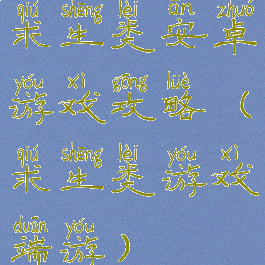 qiú shēng lèi ān zhuó
求生类安卓
yóu xì gōng lüè
游戏攻略（
qiú shēng lèi yóu xì
求生类游戏
duān yóu
端游）